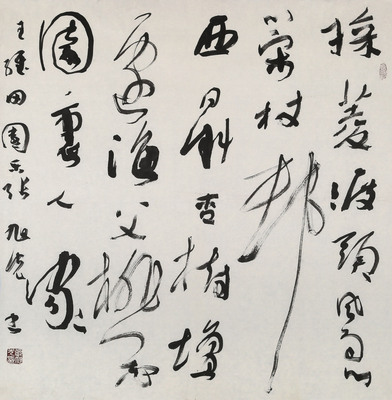 採菱渡頭風急
策杖林
西日斜杏樹壇
邊漁父桃花
園裏人家
王維田園樂張旭光書